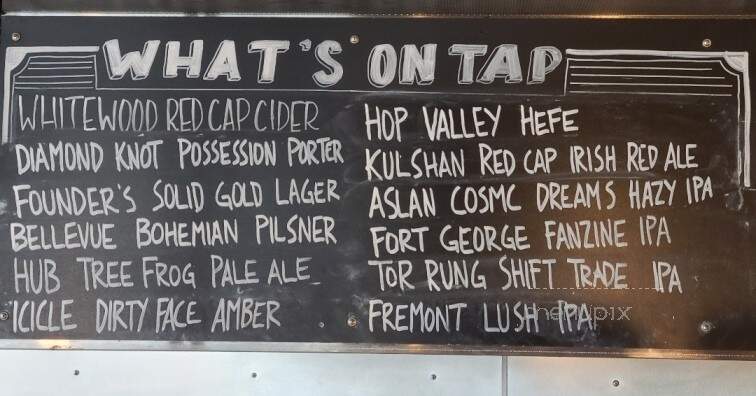 WHAT'S ON TAP
WHITEWOOD RED CAP CIDER
DIAMOND KNOT POSSESSION PORTER
FOUNDER'S SOLID GOLD LAGER
BELLEVUE BOHEMIAN PILSNER
HUB TREE FROG PALE ALE
ICICLE DIRTY FACE AMBER
HOP VALLEY HEFE
KULSHAN RED CAP IRISH RED ALE
ASLAN COSMC DREAMS HAZY IPA
FORT GEORGE FANZINE IPA
TOR RUNG SHIFT TRADE IPA
FREMONT LUSH IPA
menupix